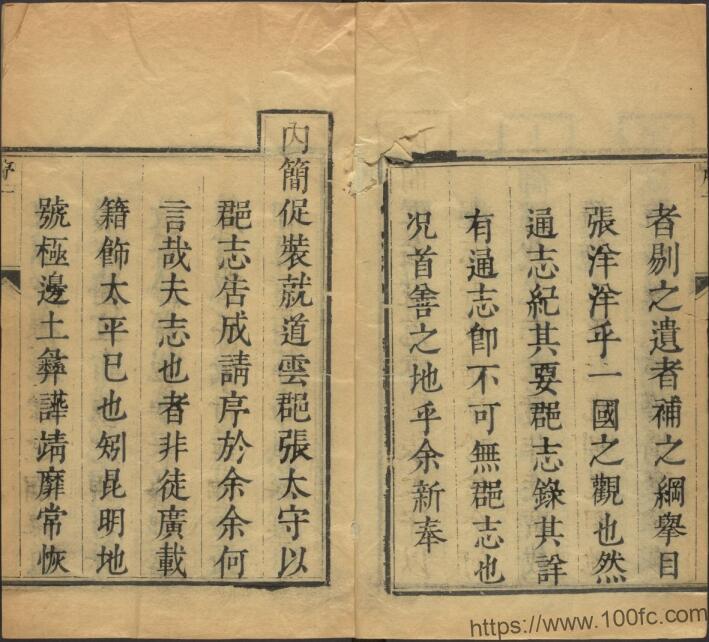 者剔之遺者補之綱舉目
張洋洋乎一國之觀也然
通志紀其要郡志錄其詳
有通志卽不可無郡志也
况首善之地乎余新奉
內簡促裝就道雲郡張太守以
郡志告成請序於余余何
言哉夫志也者非徒廣載
籍飾太平已也矧昆明地
號極邊土彝譁靖靡常恢
序
https://www.100fc.com